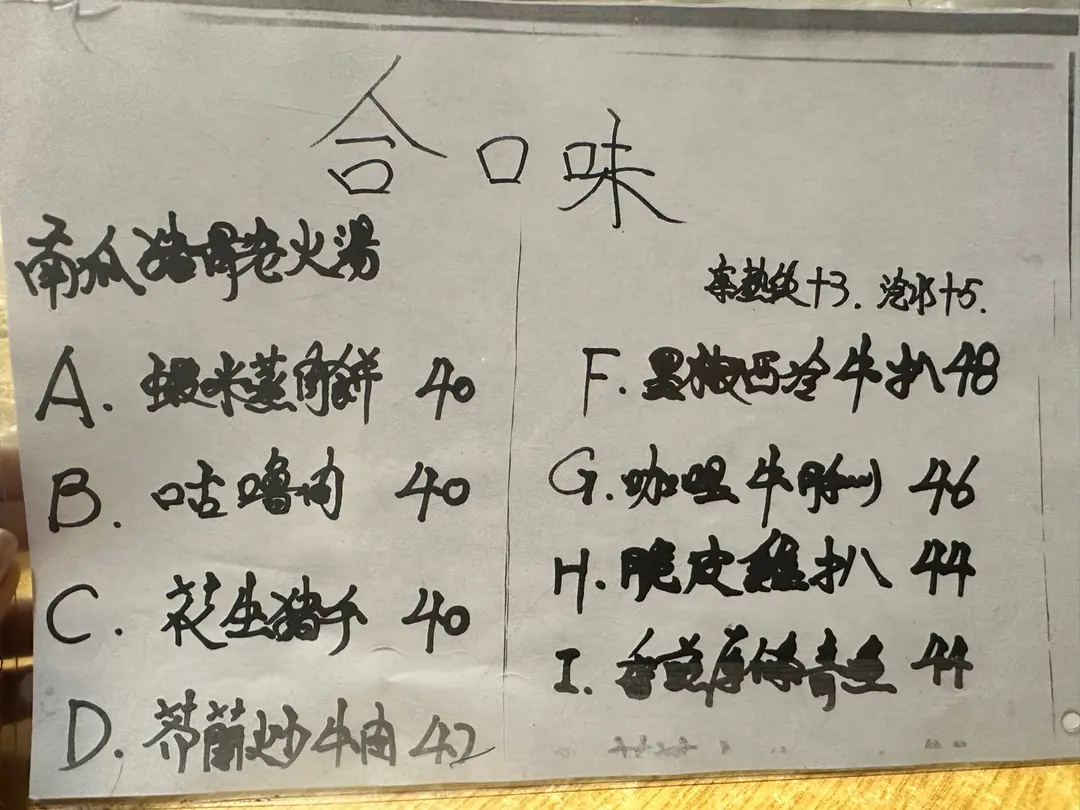 合口味
南瓜猪骨老火湯
A. 蝦米蒸肉餅 40
B. 咕嚕肉 40
C. 花生豬手 40
D. 芥蘭炒牛肉 42
热飲+3. 冻水+5.
F. 黑椒西冷牛扒 48
G. 咖喱牛腩 46
H. 脆皮雞扒 44
I. 香煎 魚 44